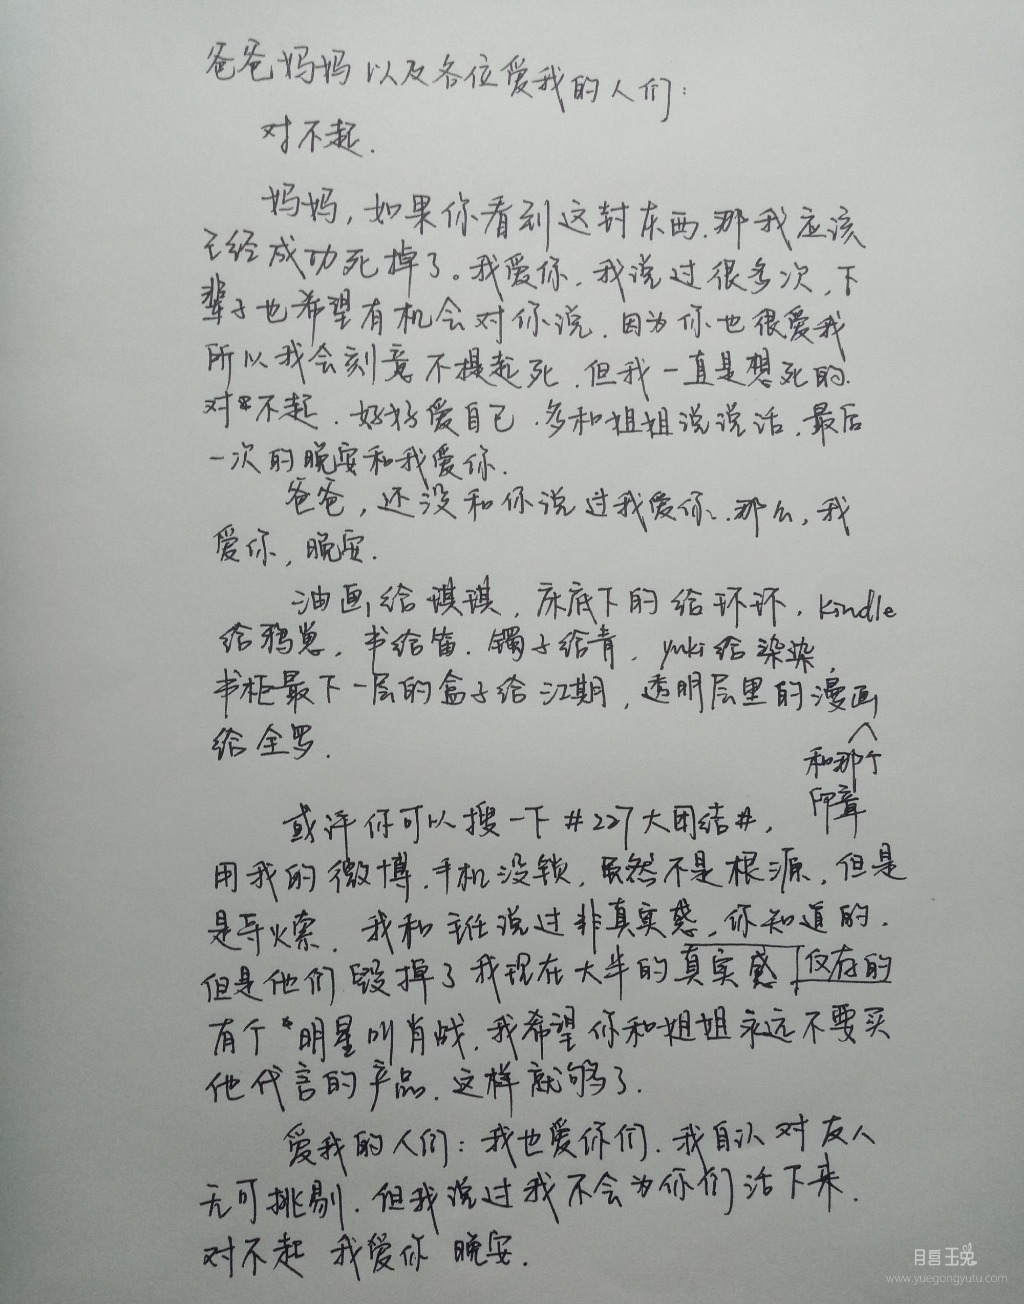 爸爸妈妈以及各位爱我的人们:
对不起.
妈妈,如果你看到这封东西.那我应该
已经成功死掉了。我爱你,我说过很多次,下
辈子也希望有机会对你说.因为你也很爱我
所以我会刻意不提起死.但我一直是想死的.
对不起.好好爱自己.多和姐姐说说话.最后
一次的晚安和我爱你.
爸爸,还没和你说过我爱你.那么,我
爱你,晚安.
油画给琪琪,床底下的给环环.kindle
给鸦崽,书给笛.镯子给青,yuki给染染,
书柜最下一层的盒子给江期,透明层里的漫画
和那个
印章
给全罗.
或许你可以搜一下#227大团结#,
用我的微博.手机没锁,虽然不是根源,但是
是导火索.我和主任说过非真实感,你知道的.
但是他们毁掉了我现在大半的真实感 仅存的
有个明星叫肖战.我希望你和姐姐永远不要买
他代言的产品.这样就够了.
爱我的人们:我也爱你们.我自认对友人
无可挑剔.但我说过我不会为你们活下来.
对不起 我爱你 晚安.
月宫玉兔
www.yuegongyutu.com